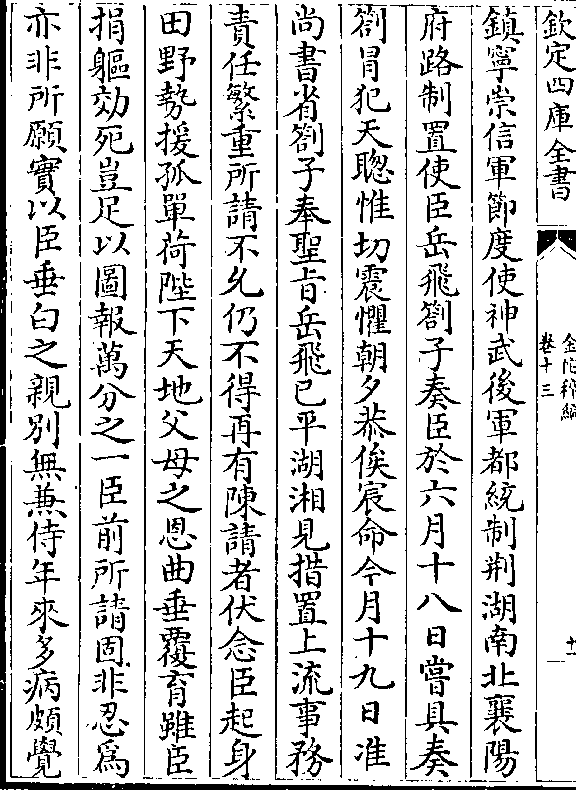 欽定四庫全書
金佗稡編
卷十三
鎮寧崇信軍節度使神武後軍都統制荆湖南北襄陽
府路制置使臣岳飛劄子奏臣於六月十八日嘗具奏
劄冒犯天聰惟切震懼朝夕恭俟宸命今月十九日准
尚書省劄子奉聖旨岳飛已平湖湘見措置上流事務
責任繁重所請不允仍不得再有陳請者伏念臣起身
田野勢援孤單荷陛下天地父母之恩曲垂覆育雖臣
捐軀効死豈足以圖報萬分之一臣前所請固非忍為
亦非所願實以臣垂白之親別無兼侍年來多病頗覺